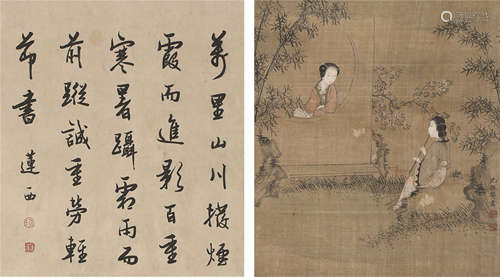 萬里山川撥煙
霞而進影百重
寒暑躡霜雨而
前蹤誠重勞輕
節書 蓮西